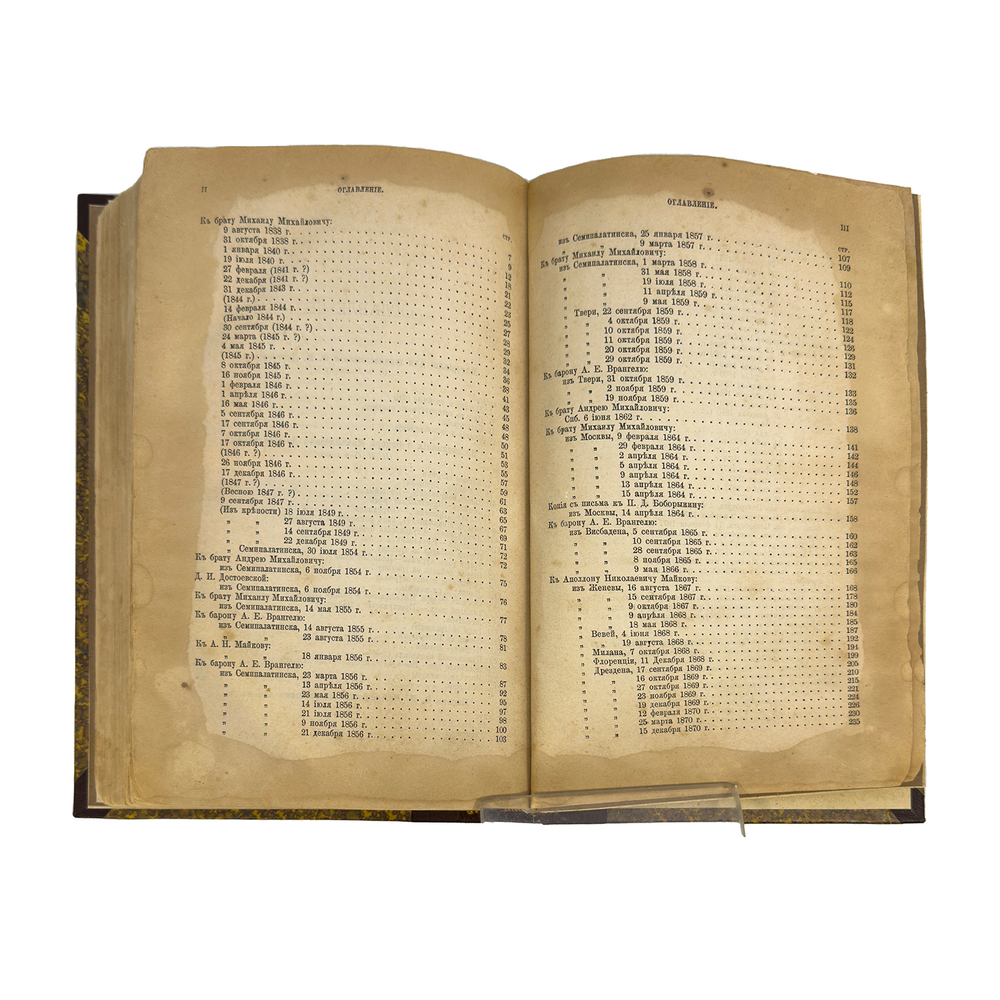 II
ОГЛАВЛЕНІЕ.
СТР.
Къ брату Михаилу Михайловичу:
9 августа 1838 г. 7
31 октября 1838 г. 9
1 января 1840 г. 12
19 іюля 1840 г. 18
27 февраля (1841 г. ?) 21
22 декабря (1841 г. ?) 22
31 декабря 1843 г. 23
(1844 г.) 25
14 февраля 1844 г. 27
(Начало 1844 г.) 28
30 сентября (1844 г. ?) 29
24 марта (1845 г. ?) 32
4 мая 1845 г. 34
(1845 г.) 36
8 октября 1845 г. 38
16 ноября 1845 г. 41
1 февраля 1846 г. 43
1 апрѣля 1846 г. 45
16 мая 1846 г. 48
5 сентября 1846 г. 48
17 сентября 1846 г. 50
7 октября 1846 г. 51
17 октября 1846 г. 53
(1846 г. ?) 55
26 ноября 1846 г. 57
17 декабря 1846 г. 59
(1847 г. ?) 61
(Весною 1847 г. ?) 63
9 сентября 1847 г. 65
(Изъ крѣпости) 18 іюля 1849 г. 67
" " 27 августа 1849 г. 69
" " 14 сентября 1849 г. 71
" " 22 декабря 1849 г. 72
" Семипалатинска, 30 іюля 1854 г. 72
Къ брату Андрею Михайловичу:
изъ Семипалатинска, 6 ноября 1854 г. 75
Д. И. Достоевской:
изъ Семипалатинска, 6 ноября 1854 г. 76
Къ брату Михаилу Михайловичу:
изъ Семипалатинска, 14 мая 1855 г. 77
Къ барону А. Е. Врангелю:
изъ Семипалатинска, 14 августа 1855 г. 78
" " 23 августа 1855 г. 81
Къ А. Н. Майкову:
" " 18 января 1856 г. 83
Къ барону А. Е. Врангелю:
изъ Семипалатинска, 23 марта 1856 г. 87
" " 13 апрѣля 1856 г. 92
" " 23 мая 1856 г. 95
" " 14 іюля 1856 г. 97
" " 21 іюля 1856 г. 98
" " 9 ноября 1856 г. 100
" " 21 декабря 1856 г. 103
ОГЛАВЛЕНІЕ.
III
СТР.
изъ Семипалатинска, 25 января 1857 г. 107
" " 9 марта 1857 г. 109
Къ брату Михаилу Михайловичу:
изъ Семипалатинска, 1 марта 1858 г. 110
" " 31 мая 1858 г. 112
" " 19 іюля 1858 г. 115
" " 11 апрѣля 1859 г. 117
" " 9 мая 1859 г. 118
" Твери, 22 сентября 1859 г. 122
" " 4 октября 1859 г. 124
" " 10 октября 1859 г. 126
" " 11 октября 1859 г. 129
" " 20 октября 1859 г. 131
" " 29 октября 1859 г. 132
Къ барону А. Е. Врангелю:
изъ Твери, 31 октября 1859 г. 133
" " 2 ноября 1859 г. 135
" " 19 ноября 1859 г. 136
Къ брату Андрею Михайловичу:
Спб. 6 іюня 1862 г. 138
Къ брату Михаилу Михайловичу:
изъ Москвы, 9 февраля 1864 г. 141
" " 29 февраля 1864 г. 142
" " 2 апрѣля 1864 г. 144
" " 5 апрѣля 1864 г. 146
" " 9 апрѣля 1864 г. 148
" " 13 апрѣля 1864 г. 152
" " 15 апрѣля 1864 г. 157
Копія съ письма къ П. Д. Боборыкину:
изъ Москвы, 14 апрѣля 1864 г. 158
Къ барону А. Е. Врангелю:
изъ Висбадена, 5 сентября 1865 г. 160
" " 10 сентября 1865 г. 162
" " 28 сентября 1865 г. 163
" " 8 ноября 1865 г. 165
" " 9 мая 1866 г. 166
Къ Аполлону Николаевичу Майкову:
изъ Женевы, 16 августа 1867 г. 168
" " 15 сентября 1867 г. 178
" " 9 октября 1867 г. 180
" " 9 апрѣля 1868 г. 184
" " 18 мая 1868 г. 185
" Вевей, 4 іюня 1868 г. 187
" " 19 августа 1868 г. 192
" Милана, 7 октября 1868 г. 194
" Флоренціи, 11 Декабря 1868 г. 199
" Дрездена, 17 сентября 1869 г. 205
" " 16 октября 1869 г. 210
" " 27 октября 1869 г. 215
" " 23 ноября 1869 г. 221
" " 19 декабря 1869 г. 224
" " 12 февраля 1870 г. 226
" " 25 марта 1870 г. 230
" " 15 декабря 1870 г. 235